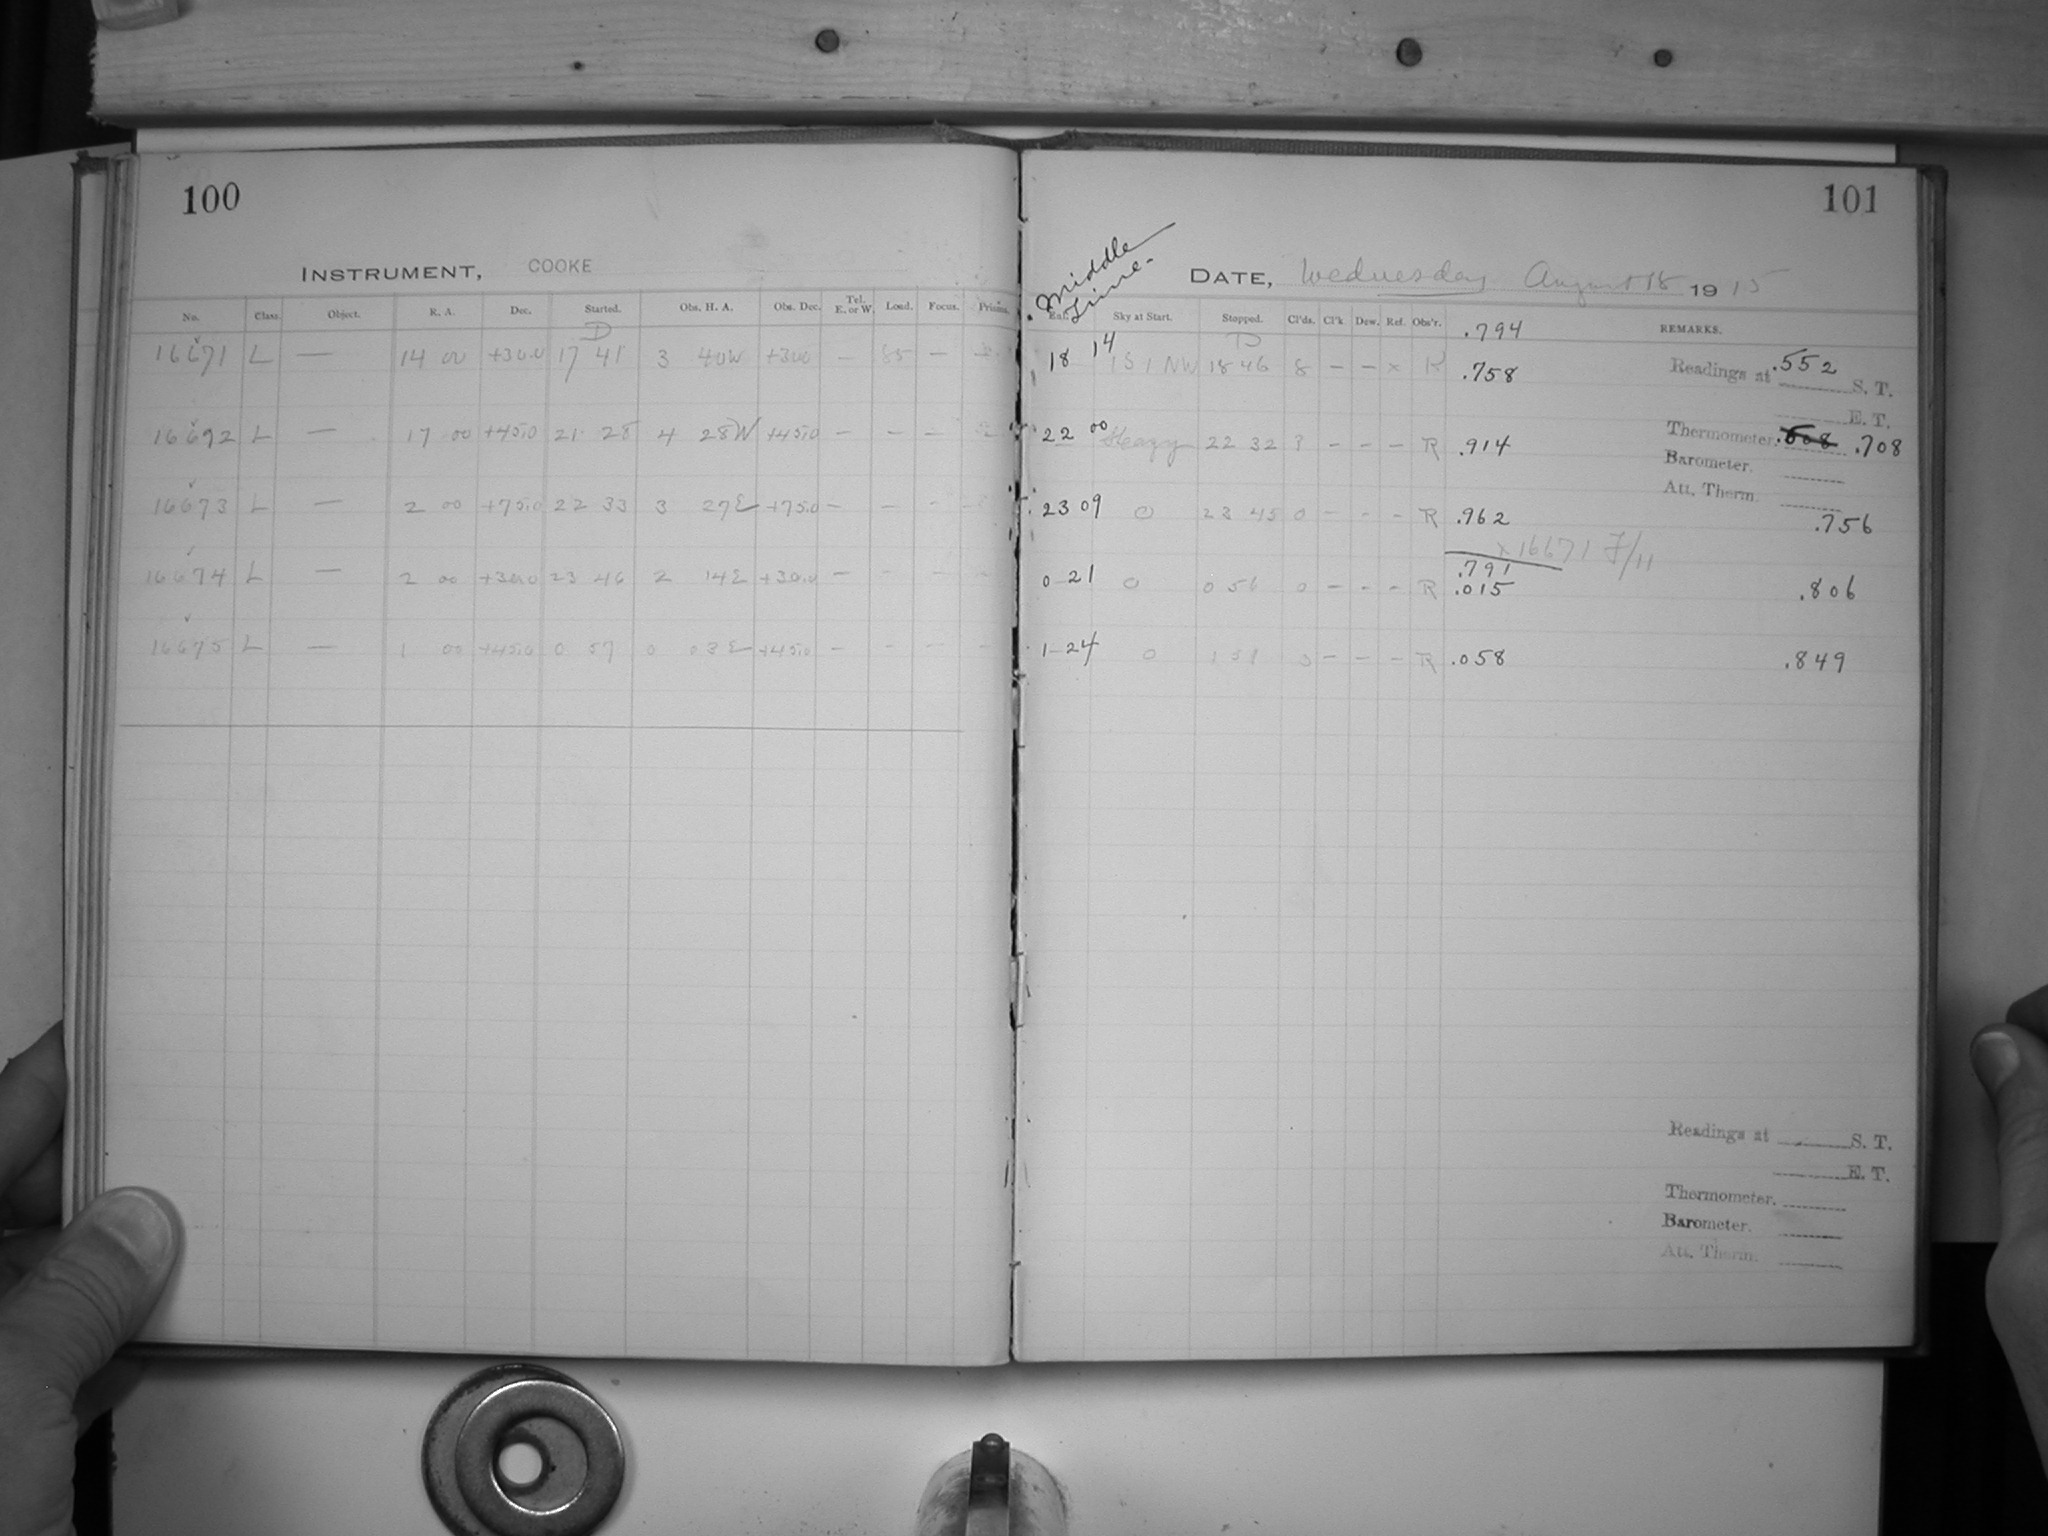 100
INSTRUMENT, COOKE
No. Class. Object. R. A. Dec. Started. Obs. H. A. Obs. Dec. Tel. E. or W. Load. Focus. Prisms.
D
16671 L — 14 00 +30.0 17 41 3 40W +30.0 — 85 —
16692 L — 17 00 +45.0 21 28 4 28W +45.0 — — —
16673 L — 2 00 +75.0 22 33 3 27E +75.0 — — -
16674 L — 2 00 +30.0 23 46 2 14E +30.0 — - -
16675 L — 1 00 +45.0 0 57 0 03E +45.0 - - -
101
Middle Time.
DATE, Wednesday August 18 1915
Exp. Sky at Start. Stopped. Cl'ds. Cl'k Dew. Ref. Obs'r. .794 REMARKS.
D
18 14 1 S 1 NW 18 46 8 — — x R .758
Readings at .552 S. T.
E. T.
22 00 Hazy 22 32 — — — R .914
Thermometer. .708
Barometer.
Att. Therm.
23 09 0 23 45 0 - - - R .962 .756
x 16671 F/11
.791
0 21 0 0 56 0 - - - R .015 .806
1 24 0 1 51 - - - R .058 .849
Readings at S. T.
E. T.
Thermometer.
Barometer.
Att. Therm.